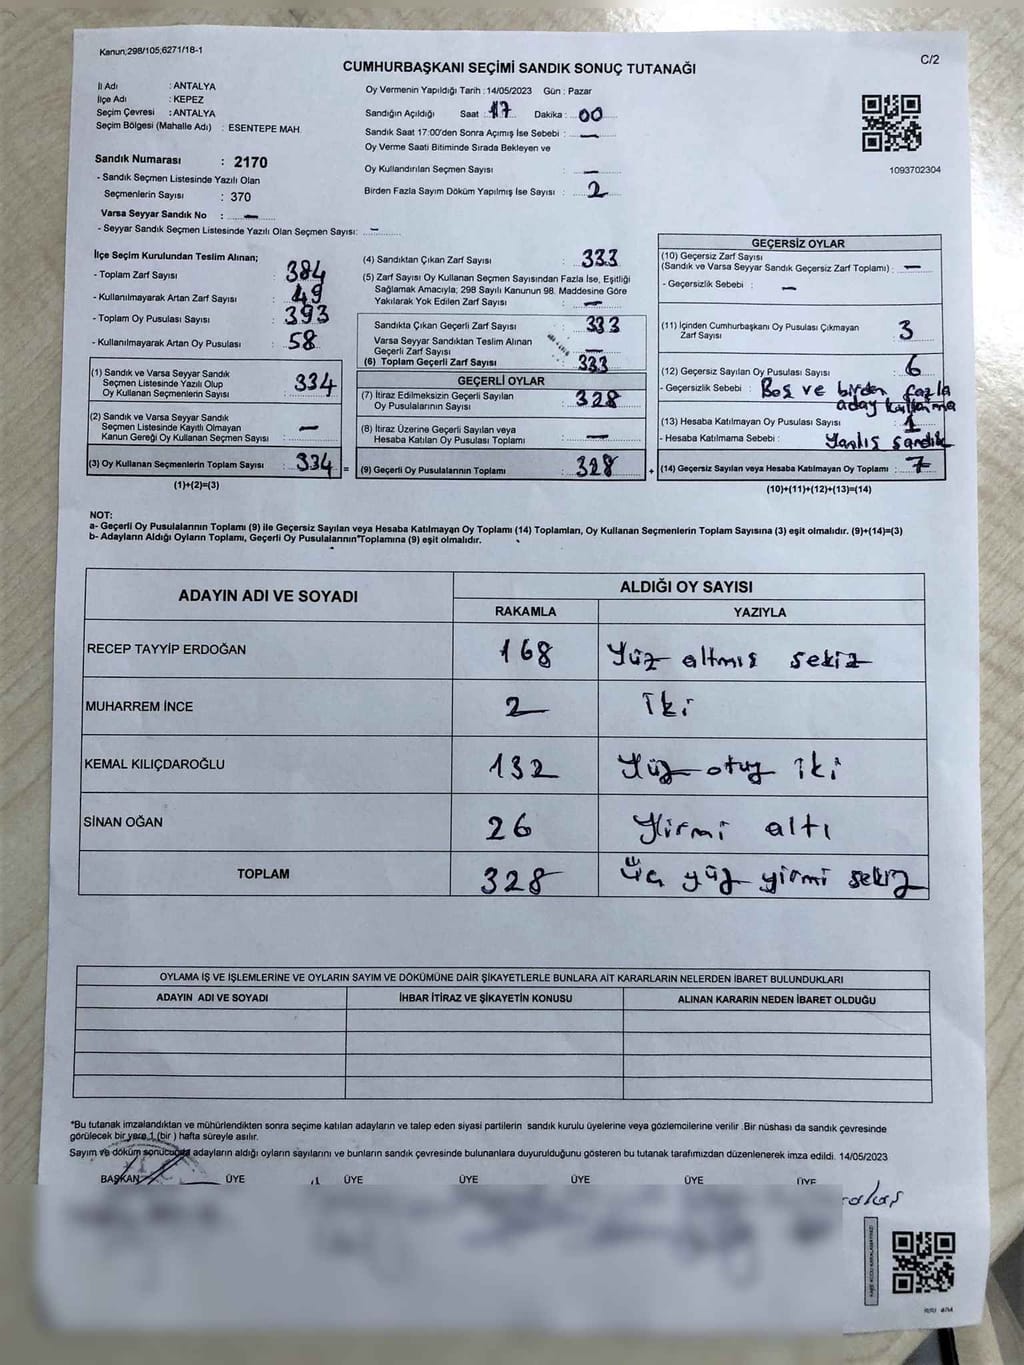 Kanun;298/105;6271/18-1
C/2
CUMHURBAŞKANI SEÇİMİ SANDIK SONUÇ TUTANAĞI
İl Adı : ANTALYA
İlçe Adı : KEPEZ
Seçim Çevresi : ANTALYA
Seçim Bölgesi (Mahalle Adı) : ESENTEPE MAH.
Sandık Numarası : 2170
- Sandık Seçmen Listesinde Yazılı Olan
Seçmenlerin Sayısı : 370
Varsa Seyyar Sandık No : —
- Seyyar Sandık Seçmen Listesinde Yazılı Olan Seçmen Sayısı: —
Oy Vermenin Yapıldığı Tarih : 14/05/2023 Gün : Pazar
Sandığın Açıldığı Saat : 17 Dakika : 00
Sandık Saat 17:00'den Sonra Açımış İse Sebebi : —
Oy Verme Saati Bitiminde Sırada Bekleyen ve
Oy Kullandırılan Seçmen Sayısı : —
Birden Fazla Sayım Döküm Yapılmış İse Sayısı : 2
1093702304
İlçe Seçim Kurulundan Teslim Alınan;
- Toplam Zarf Sayısı : 384
- Kullanılmayarak Artan Zarf Sayısı : 49
- Toplam Oy Pusulası Sayısı : 393
- Kullanılmayarak Artan Oy Pusulası : 58
(1) Sandık ve Varsa Seyyar Sandık
Seçmen Listesinde Yazılı Olup
Oy Kullanan Seçmenlerin Sayısı : 334
(2) Sandık ve Varsa Seyyar Sandık
Seçmen Listesinde Kayıtlı Olmayan
Kanun Gereği Oy Kullanan Seçmen Sayısı : —
(3) Oy Kullanan Seçmenlerin Toplam Sayısı : 334 =
(1)+(2)=(3)
(4) Sandıktan Çıkan Zarf Sayısı : 333
(5) Zarf Sayısı Oy Kullanan Seçmen Sayısından Fazla İse, Eşitliği
Sağlamak Amacıyla; 298 Sayılı Kanunun 98. Maddesine Göre
Yakılarak Yok Edilen Zarf Sayısı : —
Sandıkta Çıkan Geçerli Zarf Sayısı : 333
Varsa Seyyar Sandıktan Teslim Alınan
Geçerli Zarf Sayısı : —
(6) Toplam Geçerli Zarf Sayısı : 333
GEÇERLİ OYLAR
(7) İtiraz Edilmeksizin Geçerli Sayılan
Oy Pusulalarının Sayısı : 328
(8) İtiraz Üzerine Geçerli Sayılan veya
Hesaba Katılan Oy Pusulası Toplamı : —
(9) Geçerli Oy Pusulalarının Toplamı : 328 +
GEÇERSİZ OYLAR
(10) Geçersiz Zarf Sayısı
(Sandık ve Varsa Seyyar Sandık Geçersiz Zarf Toplamı) : —
- Geçersizlik Sebebi : —
(11) İçinden Cumhurbaşkanı Oy Pusulası Çıkmayan
Zarf Sayısı : 3
(12) Geçersiz Sayılan Oy Pusulası Sayısı : 6
- Geçersizlik Sebebi : Boş ve birden fazla
aday kullanma
(13) Hesaba Katılmayan Oy Pusulası Sayısı : 1
- Hesaba Katılmama Sebebi : Yanlış sandık
(14) Geçersiz Sayılan veya Hesaba Katılmayan Oy Toplamı : 7
(10)+(11)+(12)+(13)=(14)
NOT:
a- Geçerli Oy Pusulalarının Toplamı (9) ile Geçersiz Sayılan veya Hesaba Katılmayan Oy Toplamı (14) Toplamları, Oy Kullanan Seçmenlerin Toplam Sayısına (3) eşit olmalıdır. (9)+(14)=(3)
b- Adayların Aldığı Oyların Toplamı, Geçerli Oy Pusulalarının Toplamına (9) eşit olmalıdır.
ADAYIN ADI VE SOYADI
ALDIĞI OY SAYISI
RAKAMLA YAZIYLA
RECEP TAYYİP ERDOĞAN 168 Yüz altmış sekiz
MUHARREM İNCE 2 İki
KEMAL KILIÇDAROĞLU 132 Yüz otuz iki
SİNAN OĞAN 26 Yirmi altı
TOPLAM 328 Üç yüz yirmi sekiz
OYLAMA İŞ VE İŞLEMLERİNE VE OYLARIN SAYIM VE DÖKÜMÜNE DAİR ŞİKAYETLERLE BUNLARA AİT KARARLARIN NELERDEN İBARET BULUNDUKLARI
ADAYIN ADI VE SOYADI İHBAR İTİRAZ VE ŞİKAYETİN KONUSU ALINAN KARARIN NEDEN İBARET OLDUĞU
*Bu tutanak imzalandıktan ve mühürlendikten sonra seçime katılan adayların ve talep eden siyasi partilerin sandık kurulu üyelerine veya gözlemcilerine verilir .Bir nüshası da sandık çevresinde
görülecek bir yere 1 (bir ) hafta süreyle asılır.
Sayım ve döküm sonucunda adayların aldığı oyların sayılarını ve bunların sandık çevresinde bulunanlara duyurulduğunu gösteren bu tutanak tarafımızdan düzenlenerek imza edildi. 14/05/2023
BAŞKAN ÜYE ÜYE ÜYE ÜYE ÜYE ÜYE